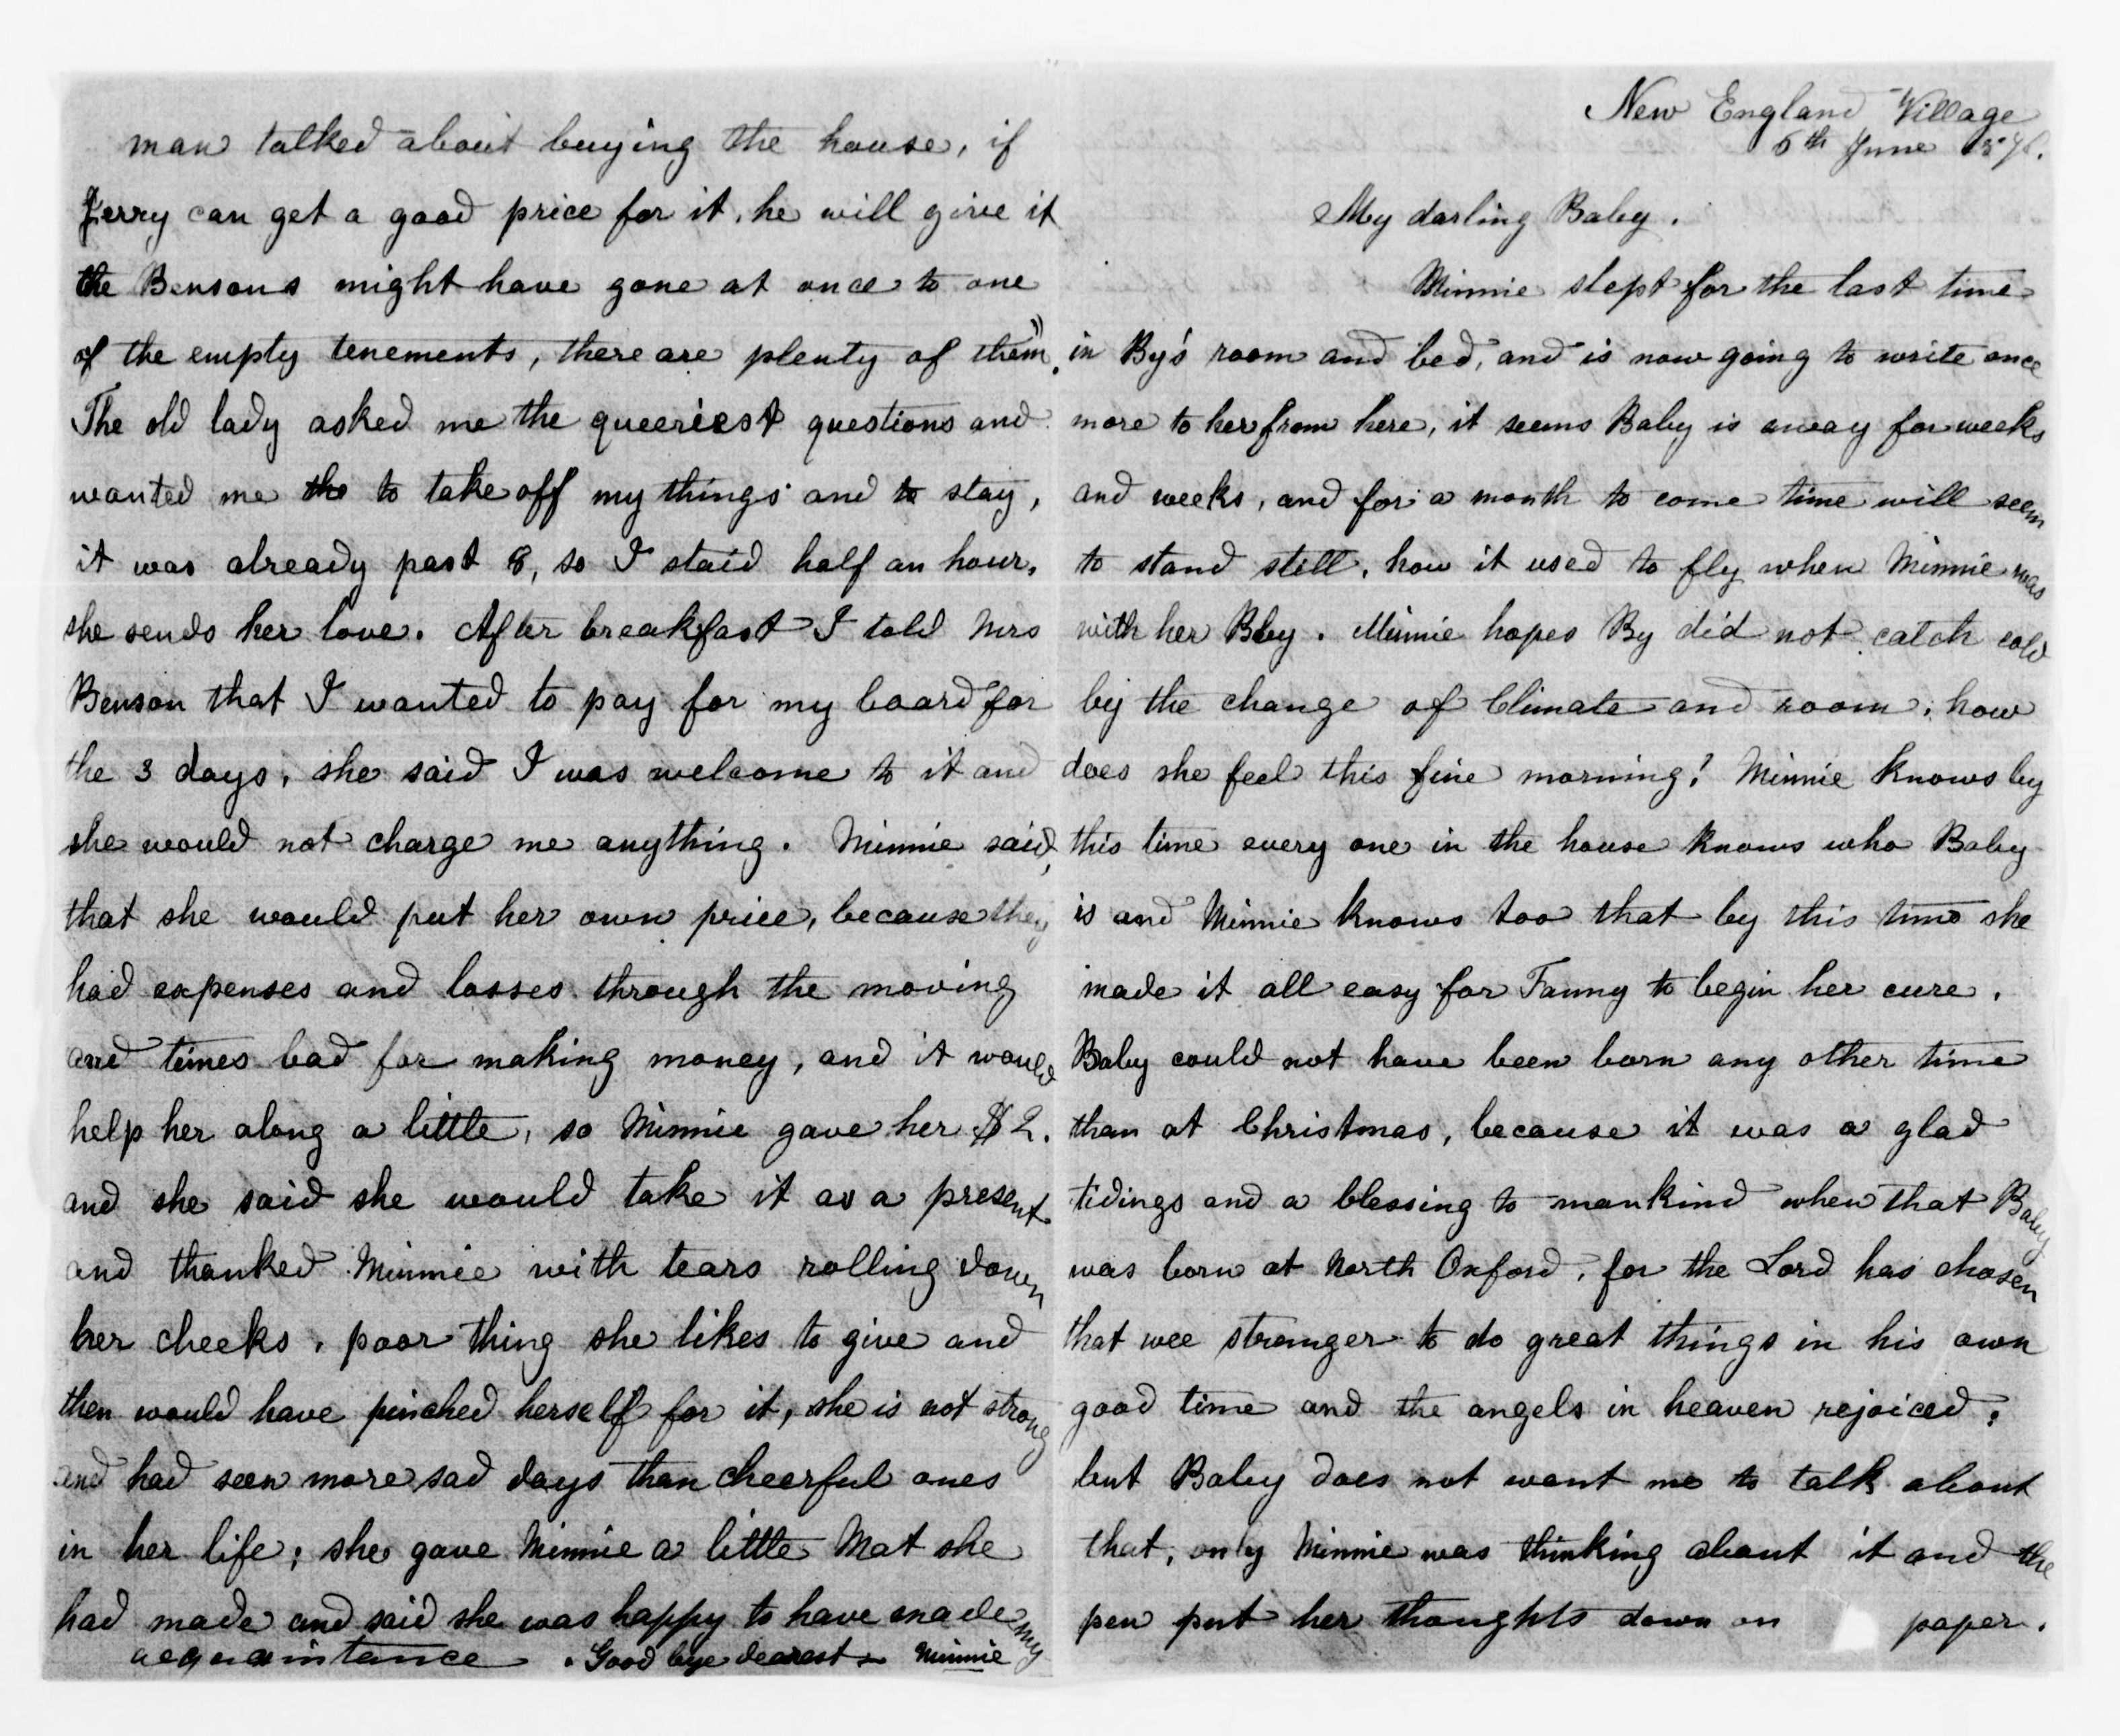 man talked about buying the house, if
Jerry can get a good price for it, he will give it
the Bensons might have gone at once to one
of the empty tenements, there are plenty of them."
The old lady asked me the queeriest questions and
wanted me the to take off my things and to stay,
it was already past 8, so I staid half an hour,
she sends her love. After breakfast I told Mrs
Benson that I wanted to pay for my board for
the 3 days, she said I was welcome to it and
she would not charge me anything. Minnie said,
that she would put her own price, because they
had expenses and losses through the moving
and times bad for making money, and it would
help her along a little, so Minnie gave her $2.
and she said she would take it as a present
and thanked Minnie with tears rolling down
her cheeks, poor thing she likes to give and
then would have pinched herself for it, she is not strong
and had seen more sad days than cheerful ones
in her life; she gave Minnie a little Mat she
had made and said she was happy to have made my
acquaintance. Good bye dearest Minnie
New England Village
6th June
My darling Baby.
Minnie slept for the last time
in By's room and bed, and is now going to write once
more to her from here, it seems Baby is away for weeks
and weeks, and for a month to come time will seem
to stand still, how it used to fly when Minnie was
with her Bby. Minnie hopes By did not catch cold
by the change of Climate and room, how
does she feel this fine morning! Minnie knows by
this time every one in the house knows who Baby
is and Minnie knows too that by this time she
made it all easy for Fanny to begin her cure.
Baby could not have been born any other time
than at Christmas, because it was a glad
tidings and a blessing to mankind when that Baby
was born at North Oxford, for the Lord has chosen
that wee stranger to do great things in his own
good time and the angels in heaven rejoiced;
but Baby does not want me to talk about
that, only Minnie was thinking about it and the
pen put her thoughts down on paper.